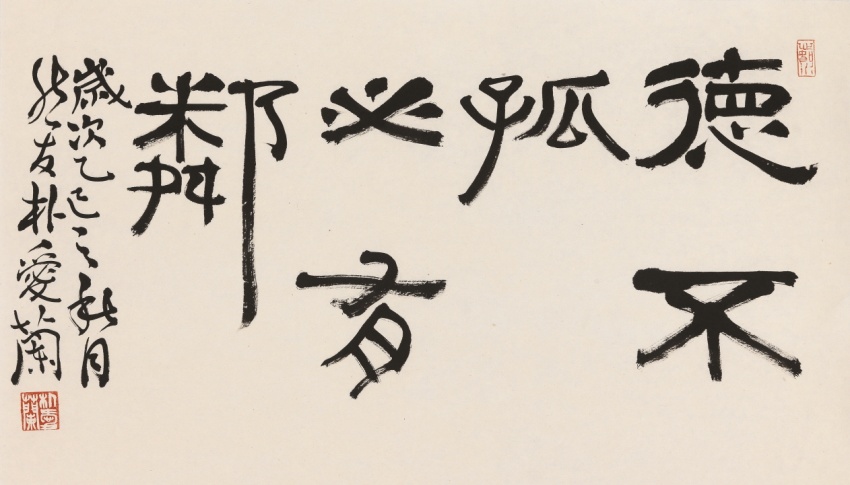 德不
孤
必有
鄰
歲次乙巳之秋月
友朴愛蘭
朴愛蘭